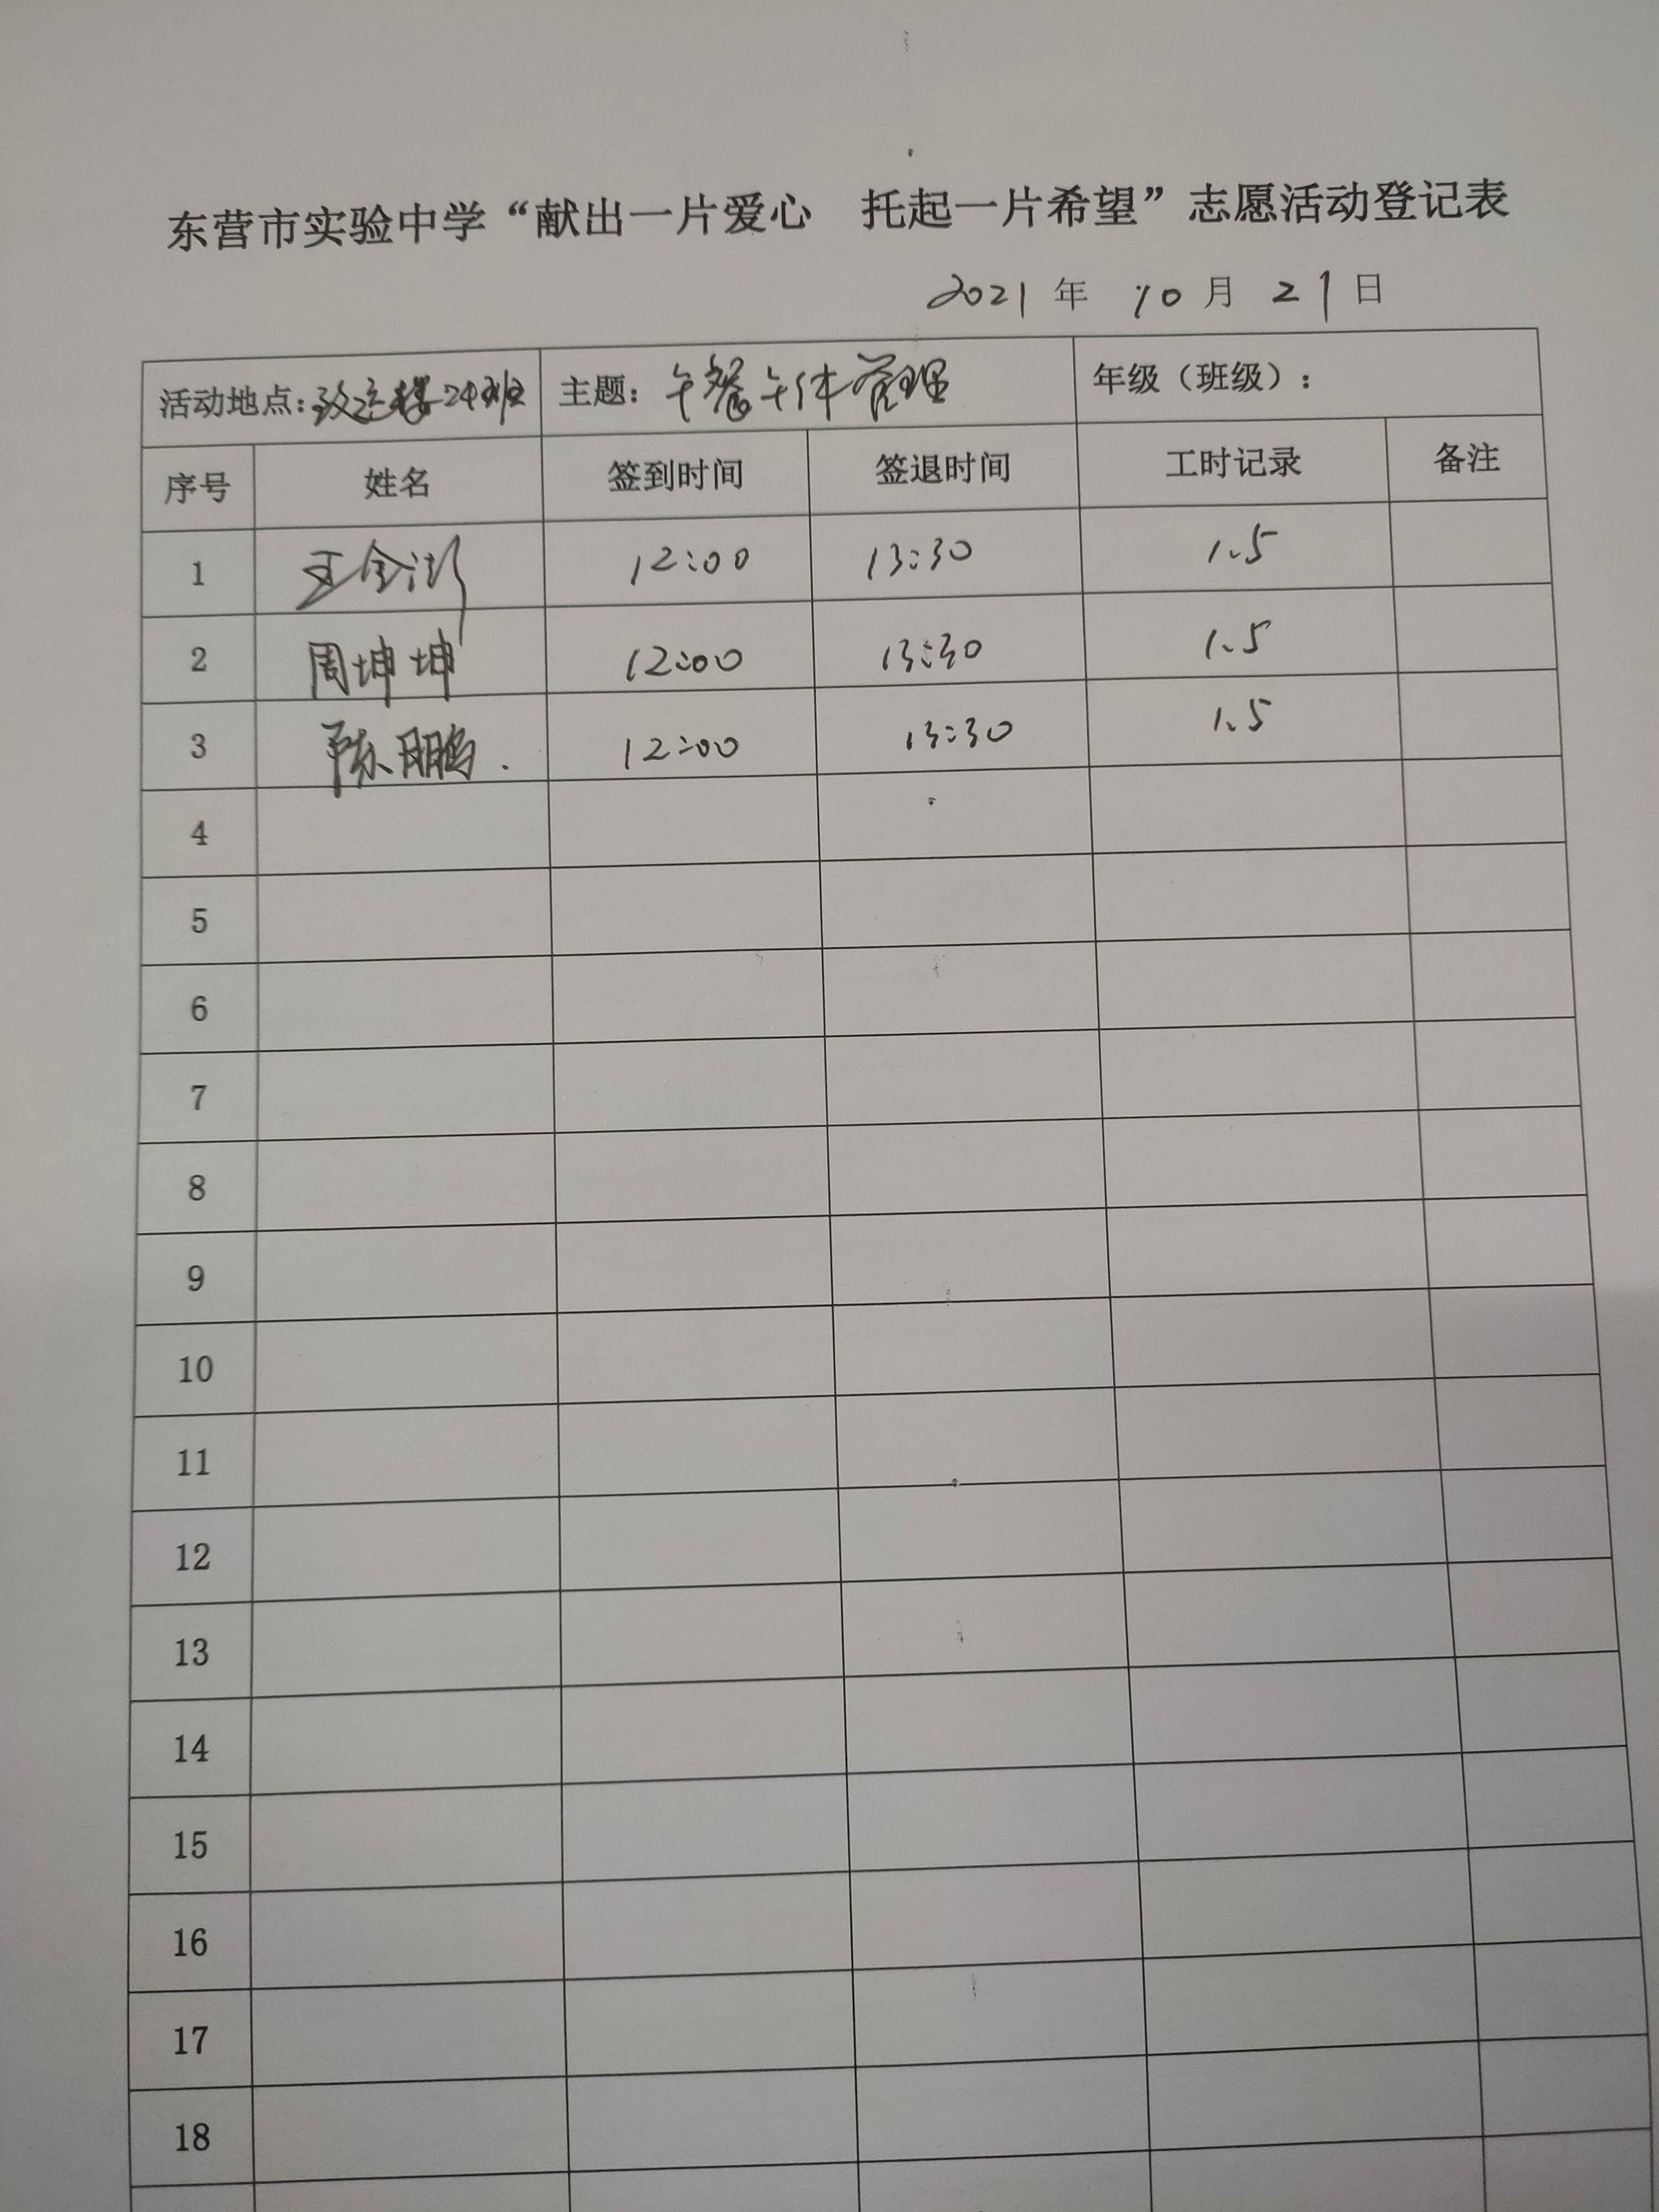 东营市实验中学“献出一片爱心 托起一片希望”志愿活动登记表
2021 年 10 月 21 日
活动地点：致远楼24班 主题：午餐午休管理 年级（班级）：
序号 姓名 签到时间 签退时间 工时记录 备注
1 王金 12:00 13:30 1.5
2 周坤坤 12:00 13:30 1.5
3 陈鹏 12:00 13:30 1.5
4
5
6
7
8
9
10
11
12
13
14
15
16
17
18